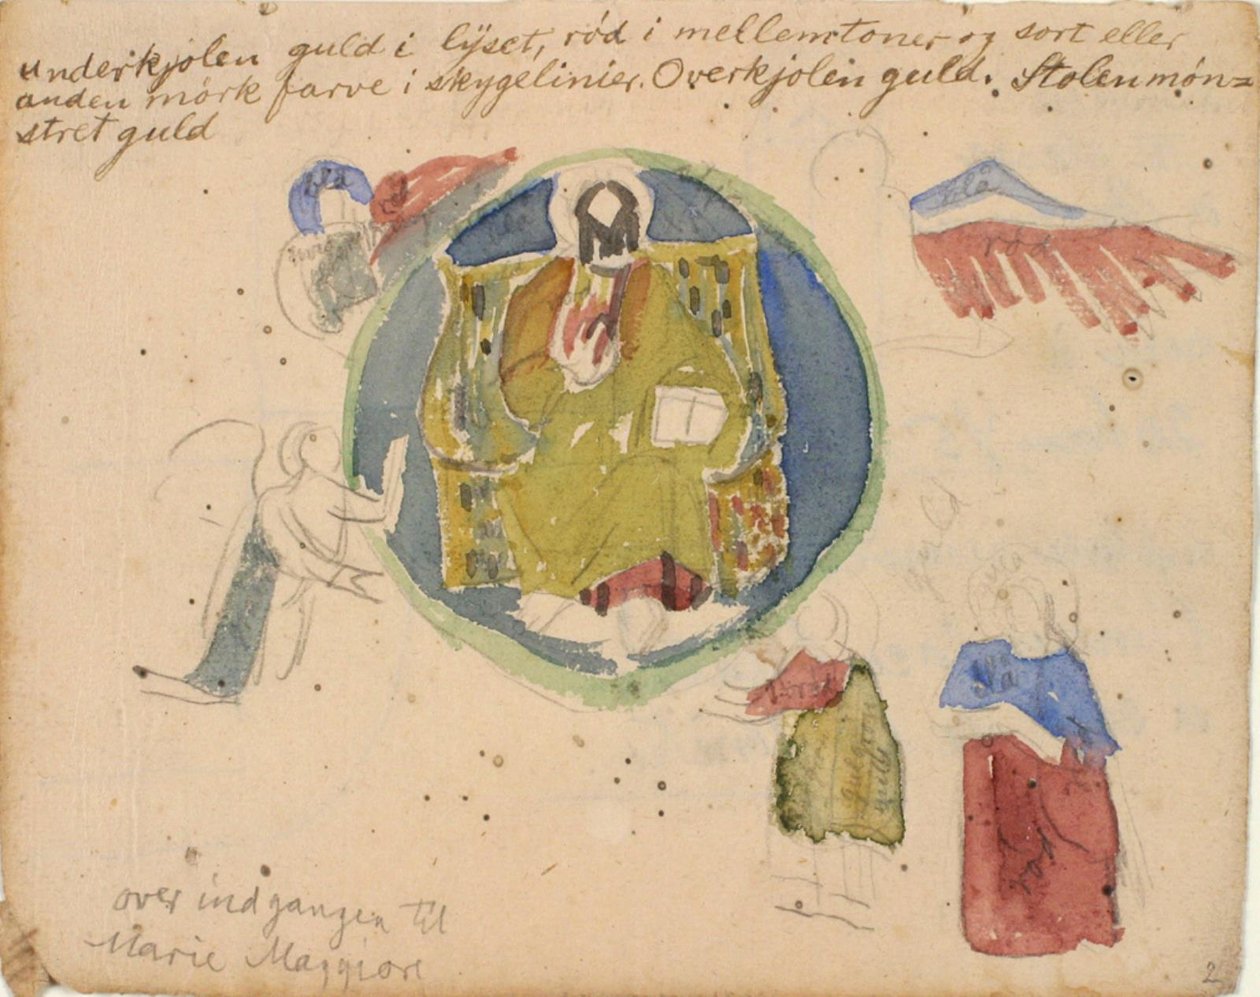 Underkjolen guld i lyset, röd i mellemtoner og sort eller
anden mörk farve i skygelinier. Overkjolen guld. Stolen mön=
stret guld
blå
blå
röd
guld
blå
röd
over indgangen til
Marie Maggiore
2